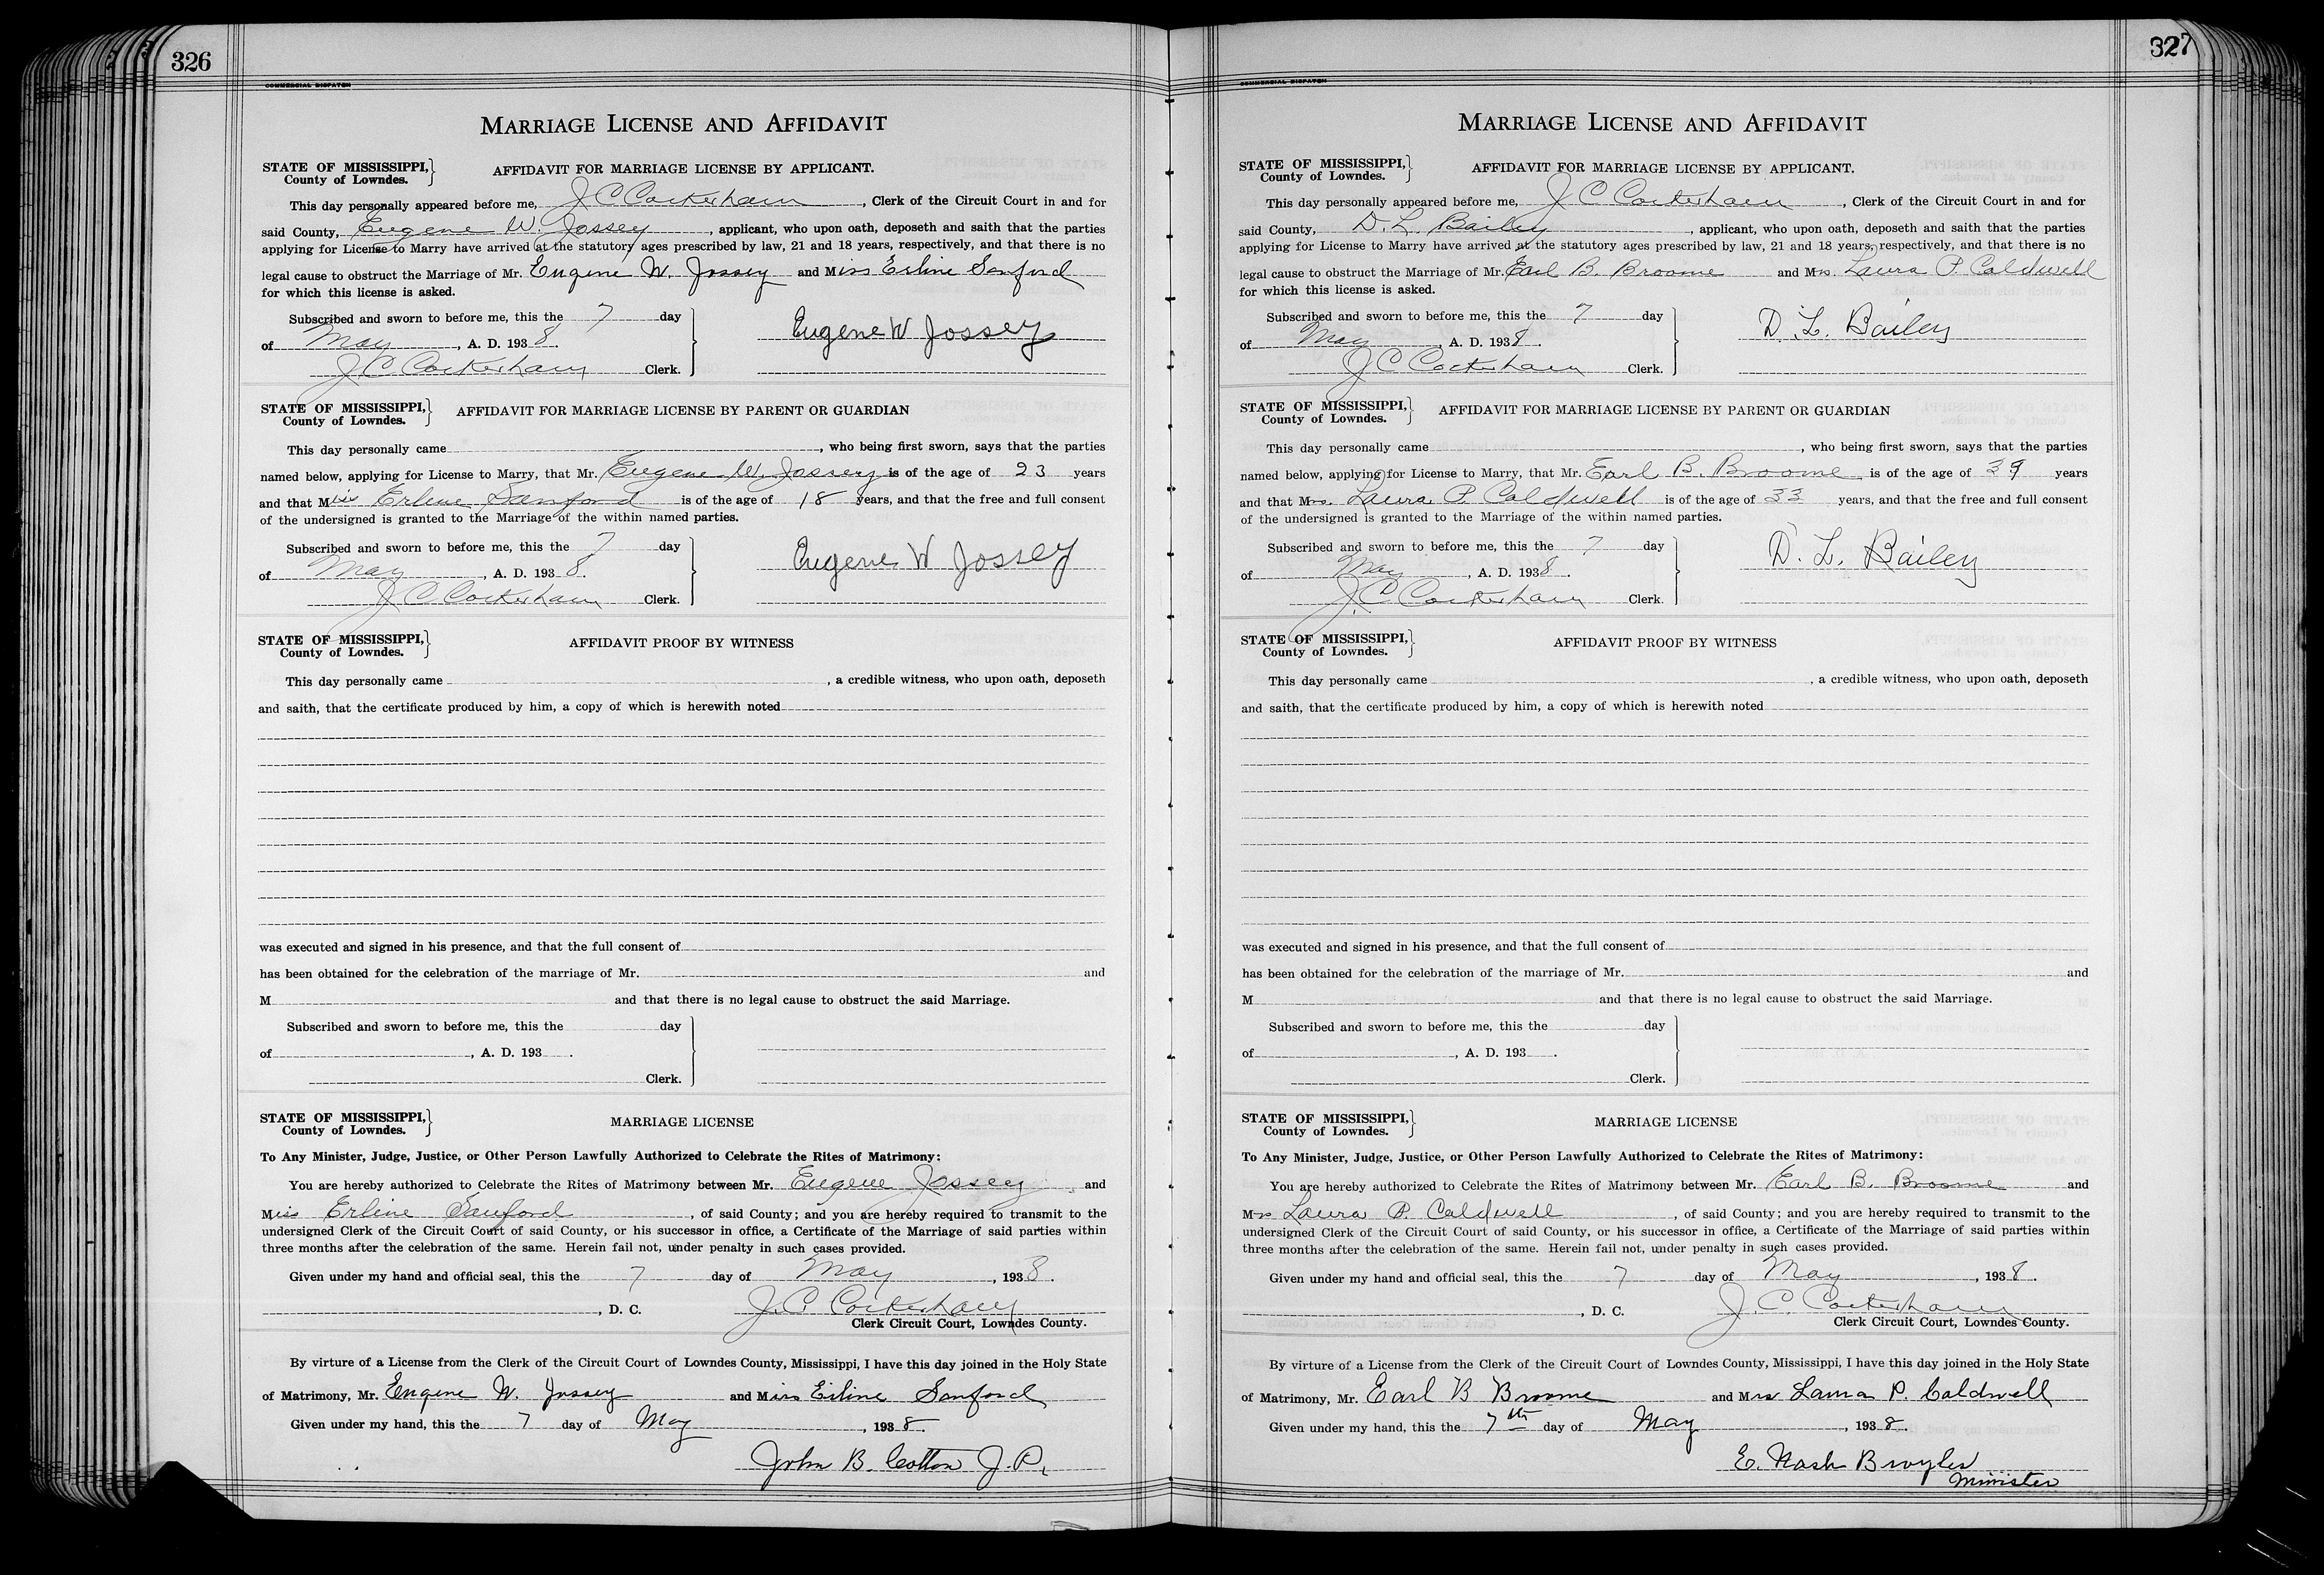 326
COMMERCIAL DISPATCH
MARRIAGE LICENSE AND AFFIDAVIT
STATE OF MISSISSIPPI,
County of Lowndes.
AFFIDAVIT FOR MARRIAGE LICENSE BY APPLICANT.
This day personally appeared before me, J C Cockerham, Clerk of the Circuit Court in and for
said County, Eugene W. Jossey, applicant, who upon oath, deposeth and saith that the parties
applying for License to Marry have arrived at the statutory ages prescribed by law, 21 and 18 years, respectively, and that there is no
legal cause to obstruct the Marriage of Mr. Eugene W. Jossey and Miss Erline Sanford
for which this license is asked.
Subscribed and sworn to before me, this the 7 day
of May, A. D. 1938.
Eugene W Jossey
J. C. Cockerham Clerk.
STATE OF MISSISSIPPI,
County of Lowndes.
AFFIDAVIT FOR MARRIAGE LICENSE BY PARENT OR GUARDIAN
This day personally came , who being first sworn, says that the parties
named below, applying for License to Marry, that Mr. Eugene W. Jossey is of the age of 23 years
and that Miss Erline Sanford is of the age of 18 years, and that the free and full consent
of the undersigned is granted to the Marriage of the within named parties.
Subscribed and sworn to before me, this the 7 day
of May, A. D. 1938.
Eugene W Jossey
J. C. Cockerham Clerk.
STATE OF MISSISSIPPI,
County of Lowndes.
AFFIDAVIT PROOF BY WITNESS
This day personally came , a credible witness, who upon oath, deposeth
and saith, that the certificate produced by him, a copy of which is herewith noted
was executed and signed in his presence, and that the full consent of
has been obtained for the celebration of the marriage of Mr. and
M and that there is no legal cause to obstruct the said Marriage.
Subscribed and sworn to before me, this the day
of , A. D. 193 .
Clerk.
STATE OF MISSISSIPPI,
County of Lowndes.
MARRIAGE LICENSE
To Any Minister, Judge, Justice, or Other Person Lawfully Authorized to Celebrate the Rites of Matrimony:
You are hereby authorized to Celebrate the Rites of Matrimony between Mr. Eugene Jossey and
Miss Erline Sanford, of said County; and you are hereby required to transmit to the
undersigned Clerk of the Circuit Court of said County, or his successor in office, a Certificate of the Marriage of said parties within
three months after the celebration of the same. Herein fail not, under penalty in such cases provided.
Given under my hand and official seal, this the 7 day of May, 1938.
, D. C. J. C. Cockerham
Clerk Circuit Court, Lowndes County.
By virture of a License from the Clerk of the Circuit Court of Lowndes County, Mississippi, I have this day joined in the Holy State
of Matrimony, Mr. Eugene W. Jossey and Miss Erline Sanford
Given under my hand, this the 7 day of May, 1938.
John B. Cotton J. P.
327
COMMERCIAL DISPATCH
MARRIAGE LICENSE AND AFFIDAVIT
STATE OF MISSISSIPPI,
County of Lowndes.
AFFIDAVIT FOR MARRIAGE LICENSE BY APPLICANT.
This day personally appeared before me, J C Cockerham, Clerk of the Circuit Court in and for
said County, D. L. Bailey, applicant, who upon oath, deposeth and saith that the parties
applying for License to Marry have arrived at the statutory ages prescribed by law, 21 and 18 years, respectively, and that there is no
legal cause to obstruct the Marriage of Mr. Earl B. Broome and Mrs. Laura P. Caldwell
for which this license is asked.
Subscribed and sworn to before me, this the 7 day
of May, A. D. 1938.
D. L. Bailey
J C Cockerham Clerk.
STATE OF MISSISSIPPI,
County of Lowndes.
AFFIDAVIT FOR MARRIAGE LICENSE BY PARENT OR GUARDIAN
This day personally came , who being first sworn, says that the parties
named below, applying for License to Marry, that Mr. Earl B. Broome is of the age of 39 years
and that Mrs. Laura P. Caldwell is of the age of 33 years, and that the free and full consent
of the undersigned is granted to the Marriage of the within named parties.
Subscribed and sworn to before me, this the 7 day
of May, A. D. 1938.
D. L. Bailey
J. C. Cockerham Clerk.
STATE OF MISSISSIPPI,
County of Lowndes.
AFFIDAVIT PROOF BY WITNESS
This day personally came , a credible witness, who upon oath, deposeth
and saith, that the certificate produced by him, a copy of which is herewith noted
was executed and signed in his presence, and that the full consent of
has been obtained for the celebration of the marriage of Mr. and
M and that there is no legal cause to obstruct the said Marriage.
Subscribed and sworn to before me, this the day
of , A. D. 193 .
Clerk.
STATE OF MISSISSIPPI,
County of Lowndes.
MARRIAGE LICENSE
To Any Minister, Judge, Justice, or Other Person Lawfully Authorized to Celebrate the Rites of Matrimony:
You are hereby authorized to Celebrate the Rites of Matrimony between Mr. Earl B. Broome and
Mrs Laura P. Caldwell, of said County; and you are hereby required to transmit to the
undersigned Clerk of the Circuit Court of said County, or his successor in office, a Certificate of the Marriage of said parties within
three months after the celebration of the same. Herein fail not, under penalty in such cases provided.
Given under my hand and official seal, this the 7 day of May, 1938.
, D. C. J. C. Cockerham
Clerk Circuit Court, Lowndes County.
By virture of a License from the Clerk of the Circuit Court of Lowndes County, Mississippi, I have this day joined in the Holy State
of Matrimony, Mr. Earl B Broome and Mrs Laura P. Caldwell
Given under my hand, this the 7th day of May, 1938.
E. Nash Broyles
Minister